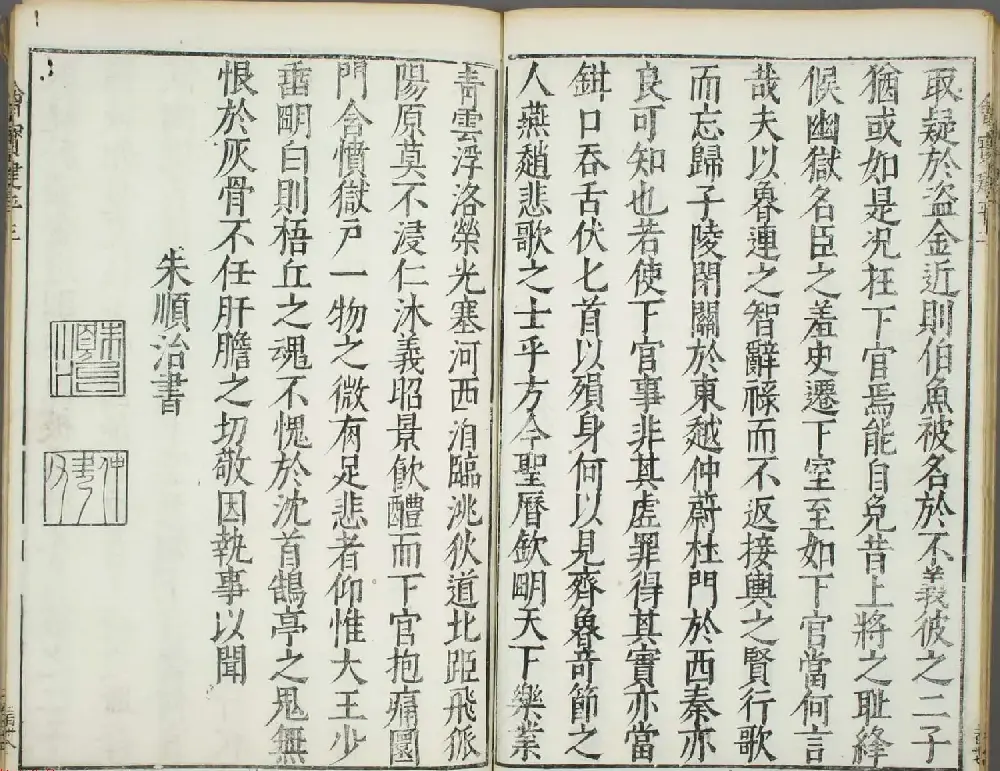 取疑於盜金近則伯魚被名於不義彼之二子
猶或如是況在下官焉能自免昔上將之耻絳
候幽獄名臣之羞史遷下室至如下官當何言
哉夫以魯連之智辭祿而不返接輿之賢行歌
而忘歸子陵閉關於東越仲蔚杜門於西秦亦
良可知也若使下官事非其虛罪得其實亦當
鉗口吞舌伏匕首以殞身何以見齊魯奇節之
人燕趙悲歌之士乎方今聖曆欽明天下樂業
青雲浮洛榮光塞河西洎臨洮狄道北距飛狐
陽原莫不浸仁沐義昭景飲醴而下官抱痛圜
門含憤獄戶一物之微有足悲者仰惟大王少
垂明白則梧丘之魂不愧於沈首鵠亭之鬼無
恨於灰骨不任肝膽之切敬因執事以聞
朱順治書